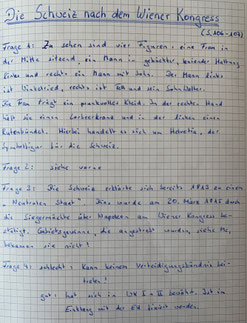 Die Schweiz nach dem Wiener Kongress
(S. 106 - 107)
Frage 1: Zu sehen sind vier Figuren: eine Frau in
der Mitte sitzend, ein Mann in gebückter, knieender Haltung
links und rechts ein Mann mit Sohn. Der Mann links
ist Winkelried, rechts ist Tell und sein Sohn Walter.
Die Frau trägt ein prunkvolles Kleid. In der rechten Hand
hält sie einen Lorbeerkranz und in der linken einen
Rutenbündel. Hierbei handelt es sich um Helvetia, der
Symbolfigur für die Schweiz.
Frage 2: siehe vorne
Frage 3: Die Schweiz erklärte sich bereits 1815 zu einem
"Neutralen Staat". Dies wurde am 20. März 1815 durch
die Siegermächte über Napoleon am Wiener Kongress be-
stätigt. Gebietsgewinne, die angestrebt wurden, siehe M2,
bekamen sie nicht!
Frage 4: schlecht: Kann keinem Verteidigungsbündnis bei-
treten!
gut: hat sich in WK I + II bewährt. Ist im
Einklang mit der EU diskutiert worden.